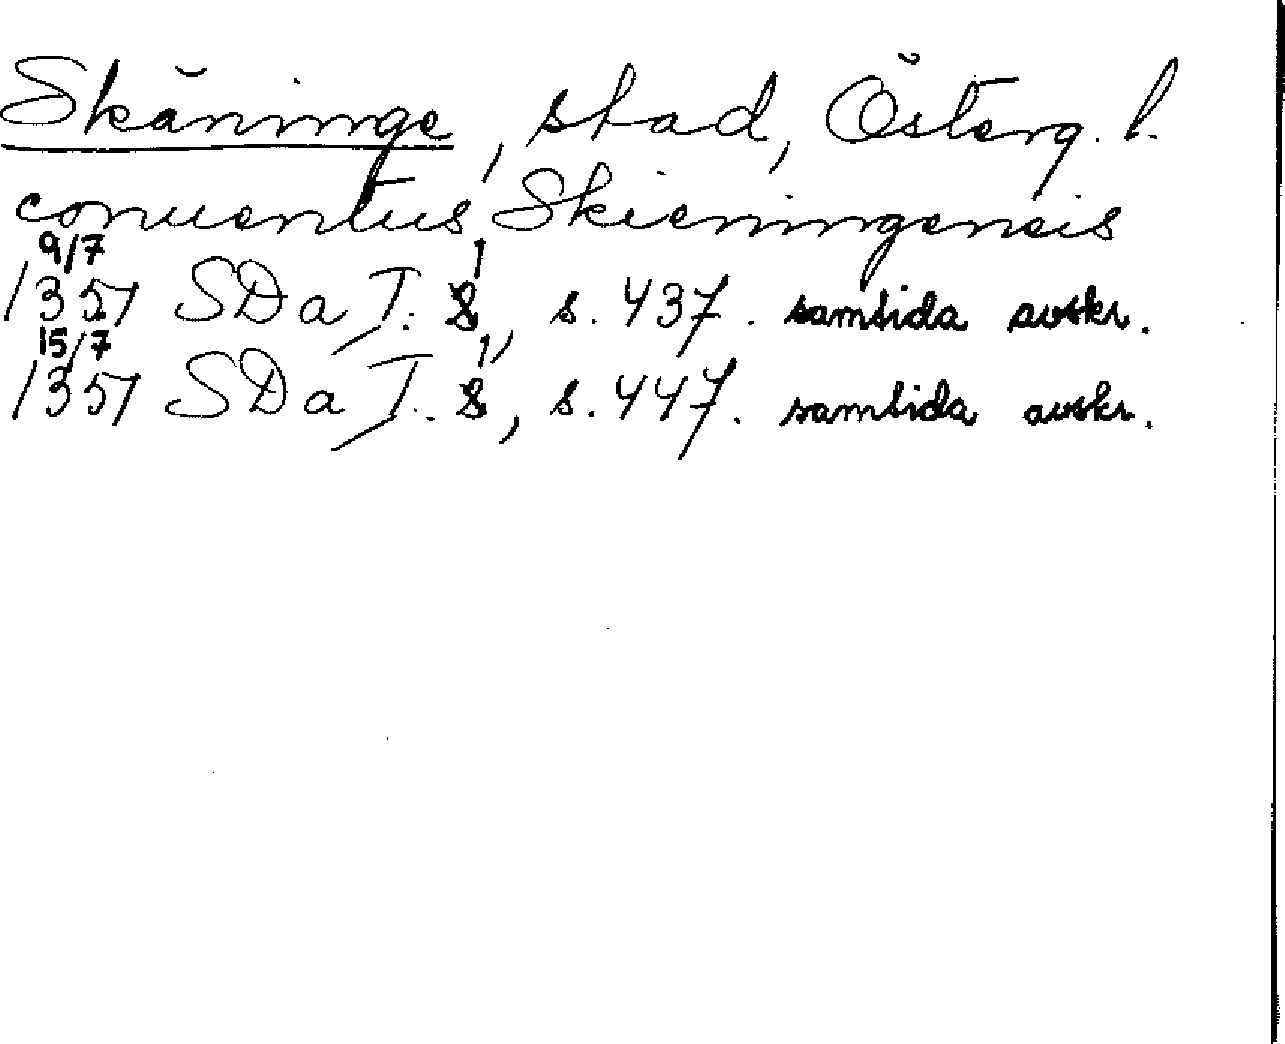 Skäninge, stad, Österg. l.
conuentus Skieningensis
9/7
1357 SDa T. 8,1 s. 437. samtida avskr.
15/7
1357 SDa T. 8,1, s. 447. samtida avskr.